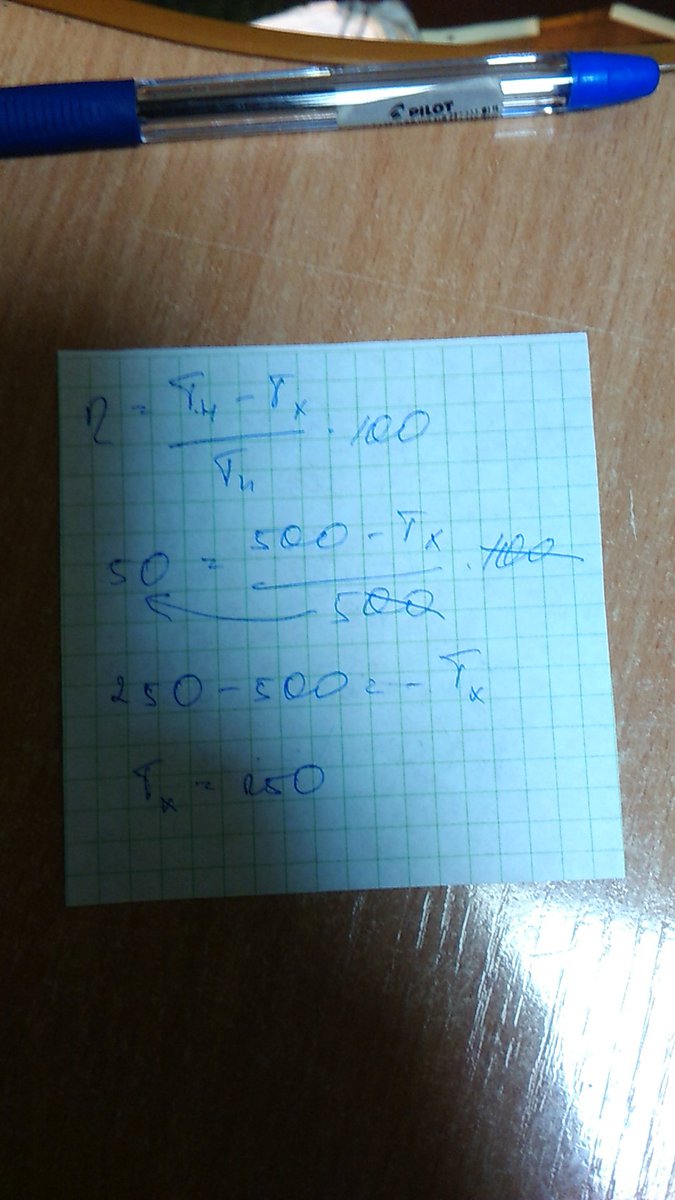 PILOT
η = (Tн - Tх)/Tн · 100
50 = (500 - Tх)/500 · 100
250 - 500 = - Tх
Tх = 250